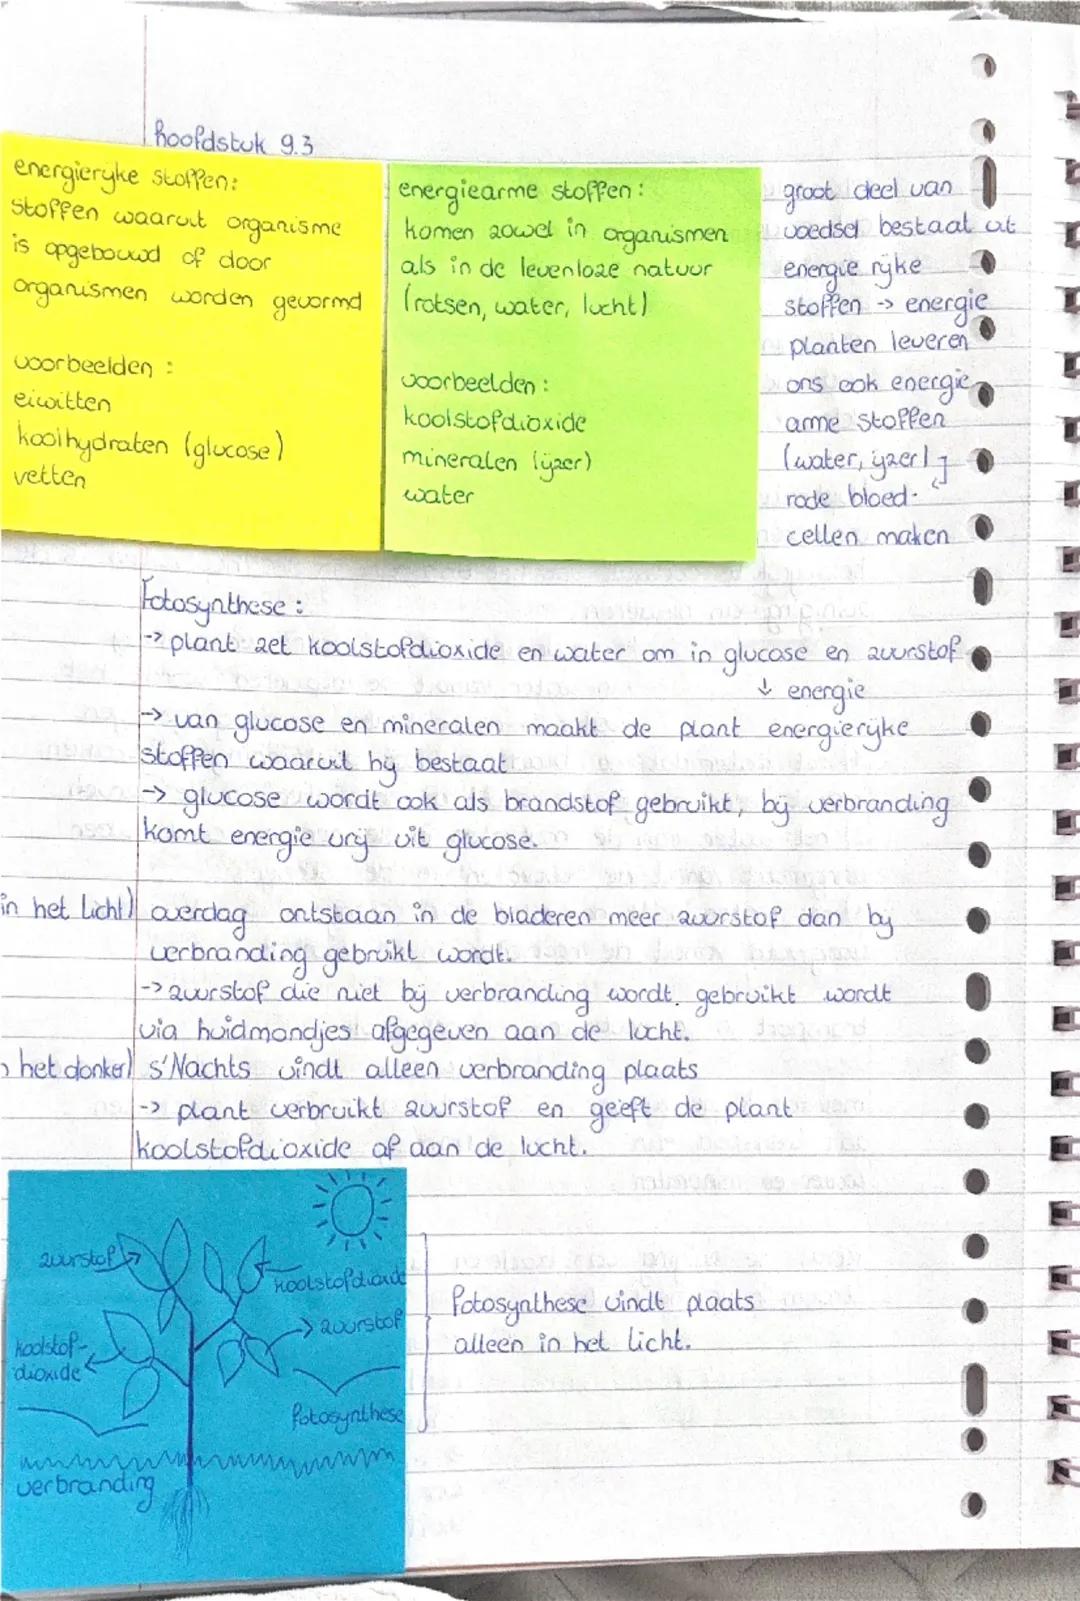 hoofdstuk 9.3
energierijke stoffen:
stoffen waaruit organisme
is opgebouwd of door
organismen worden gevormd
voorbeelden :
eiwitten
koolhydraten (glucose)
vetten
energiearme stoffen :
komen zowel in organismen
als in de levenloze natuur
(rotsen, water, lucht)
voorbeelden :
koolstofdioxide
mineralen (ijzer)
water
groot deel van
voedsel bestaat uit
energie rijke
stoffen -> energie
planten leveren
ons ook energie
arme stoffen
(water, ijzer)
rode bloed-
cellen maken
Fotosynthese :
-> plant zet koolstofdioxide en water om in glucose en zuurstof
↓ energie
-> van glucose en mineralen maakt de plant energierijke
stoffen waaruit hij bestaat
-> glucose wordt ook als brandstof gebruikt, bij verbranding
komt energie vrij uit glucose.
in het licht) overdag ontstaan in de bladeren meer zuurstof dan bij
verbranding gebruikt wordt.
-> zuurstof die niet bij verbranding wordt gebruikt wordt
via huidmondjes afgegeven aan de lucht.
het donker) s'Nachts vindt alleen verbranding plaats
-> plant verbruikt zuurstof en geeft de plant
koolstofdioxide af aan de lucht.
zuurstof
koolstofdioxide
zuurstof
koolstof-
dioxide
fotosynthese
verbranding
fotosynthese vindt plaats
alleen in het licht.